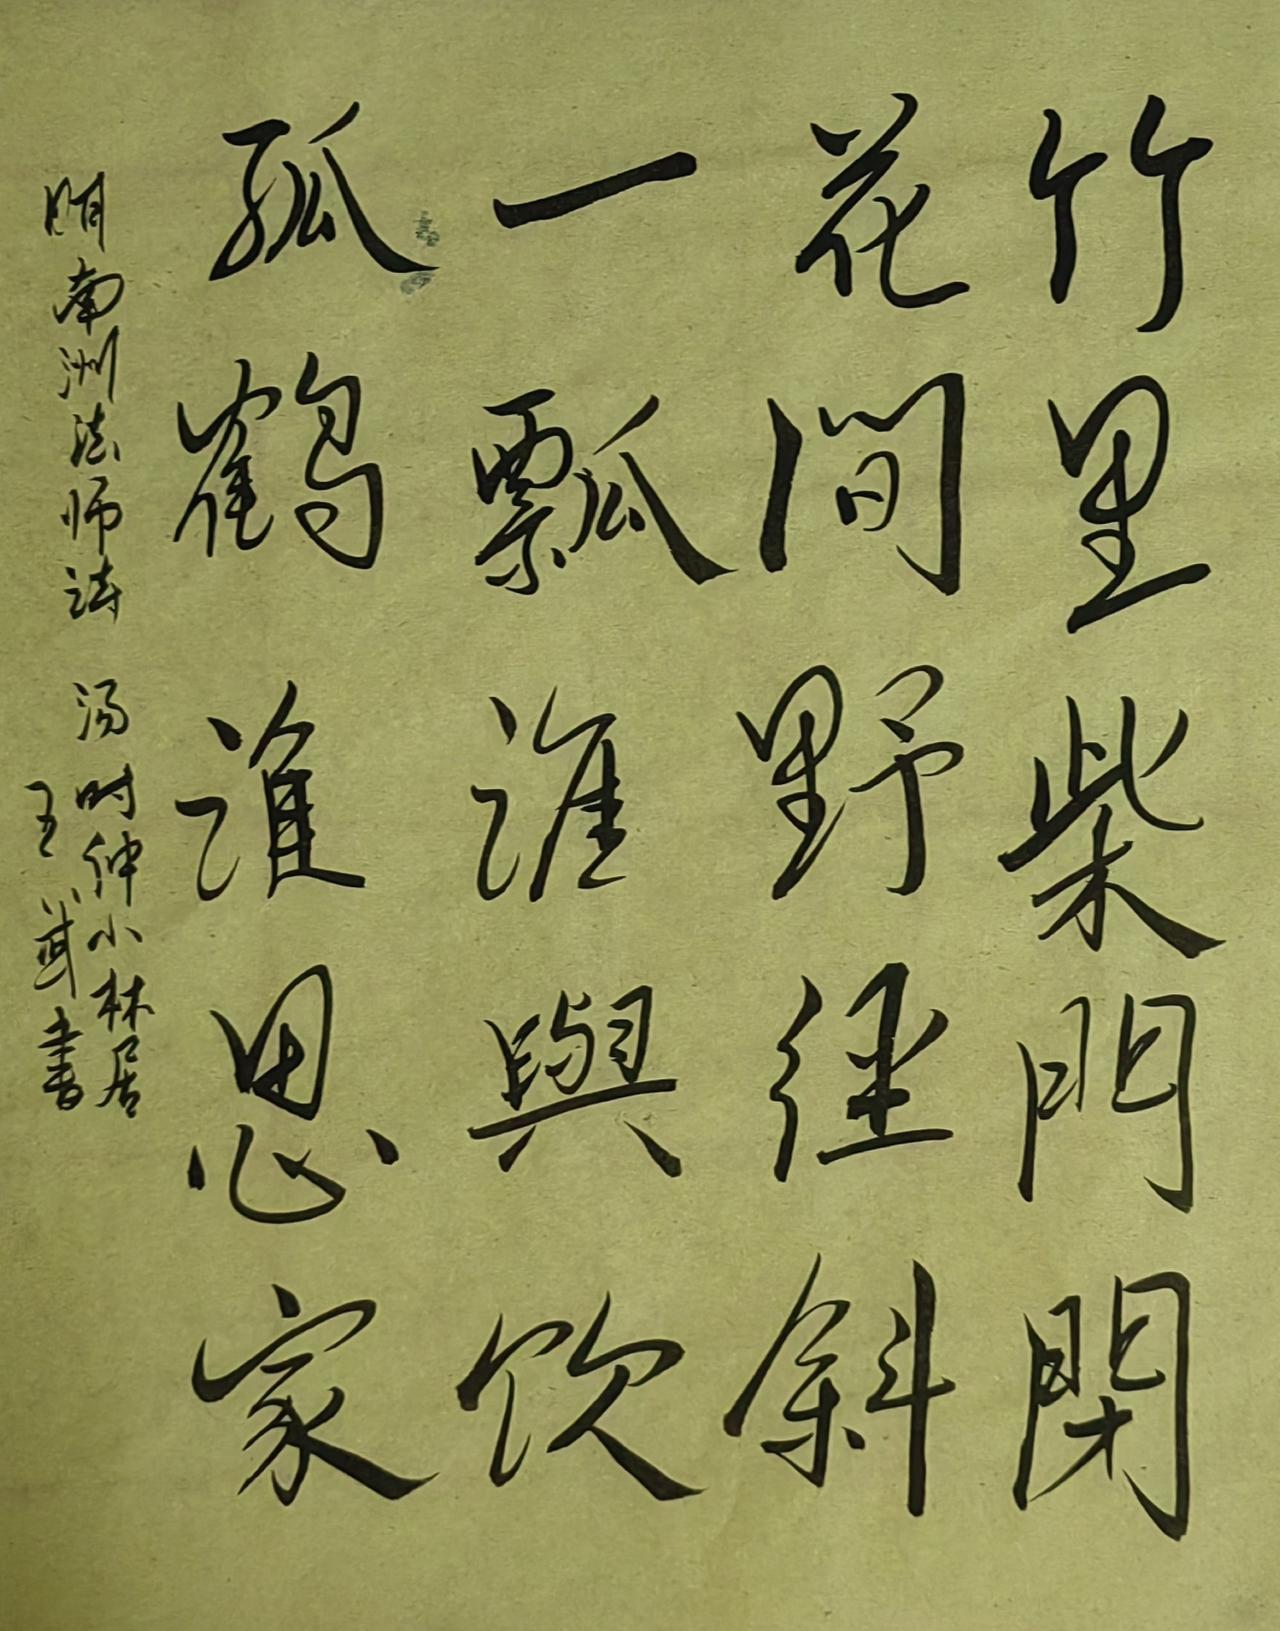 竹里柴門閉
花間野径斜
一瓢誰與飲
孤鶴誰思家
明南洲法师诗 汤时仲小林居
王 书